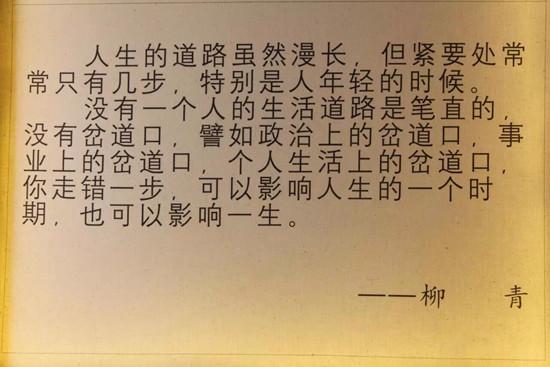 人生的道路虽然漫长，但紧要处常
常只有几步，特别是人年轻的时候。
没有一个人的生活道路是笔直的，
没有岔道口，譬如政治上的岔道口，事
业上的岔道口，个人生活上的岔道口，
你走错一步，可以影响人生的一个时
期，也可以影响一生。
——柳 青